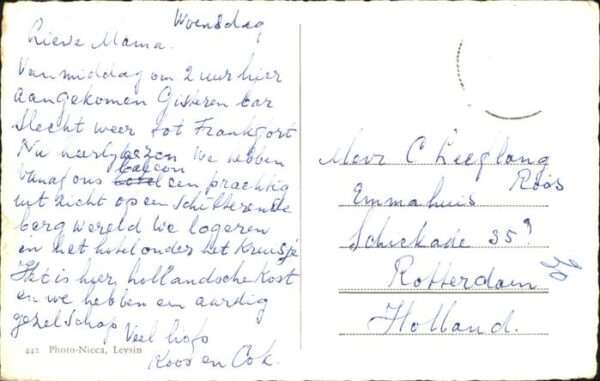 Woensdag
Lieve Mama.
Van middag om 2 uur hier
aangekomen Gisteren bar
slecht weer tot Frankfort
Nu heerlyk We hebben
balcon
vanaf ons hotel een prachtig
uit zicht op een schitterende
berg wereld We logeren
in het hotel onder het Kruisje
Het is hier hollandsche Kost
en we hebben een aardig
gezelschap
Veel liefs
Koos en Cok.
442 Photo-Nicca, Leysin
Mevr C Leeflang
Roos
Emmahuis
Schiekade 35
Rotterdam
Holland.